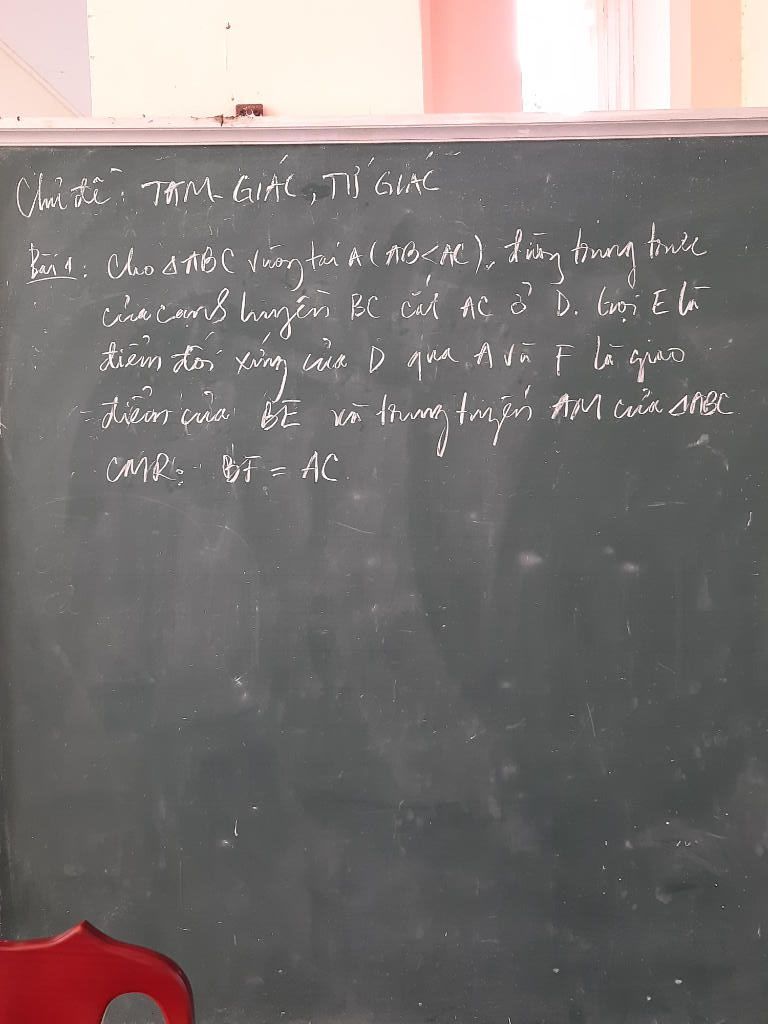 Chủ đề: TAM GIÁC, TỨ GIÁC
Bài 1: Cho ΔABC vuông tại A (AB<AC), đường trung trực
của cạnh huyền BC cắt AC ở D. Gọi E là
điểm đối xứng của D qua A và F là giao
điểm của BE và trung tuyến AM của ΔABC
CMR: BF = AC.